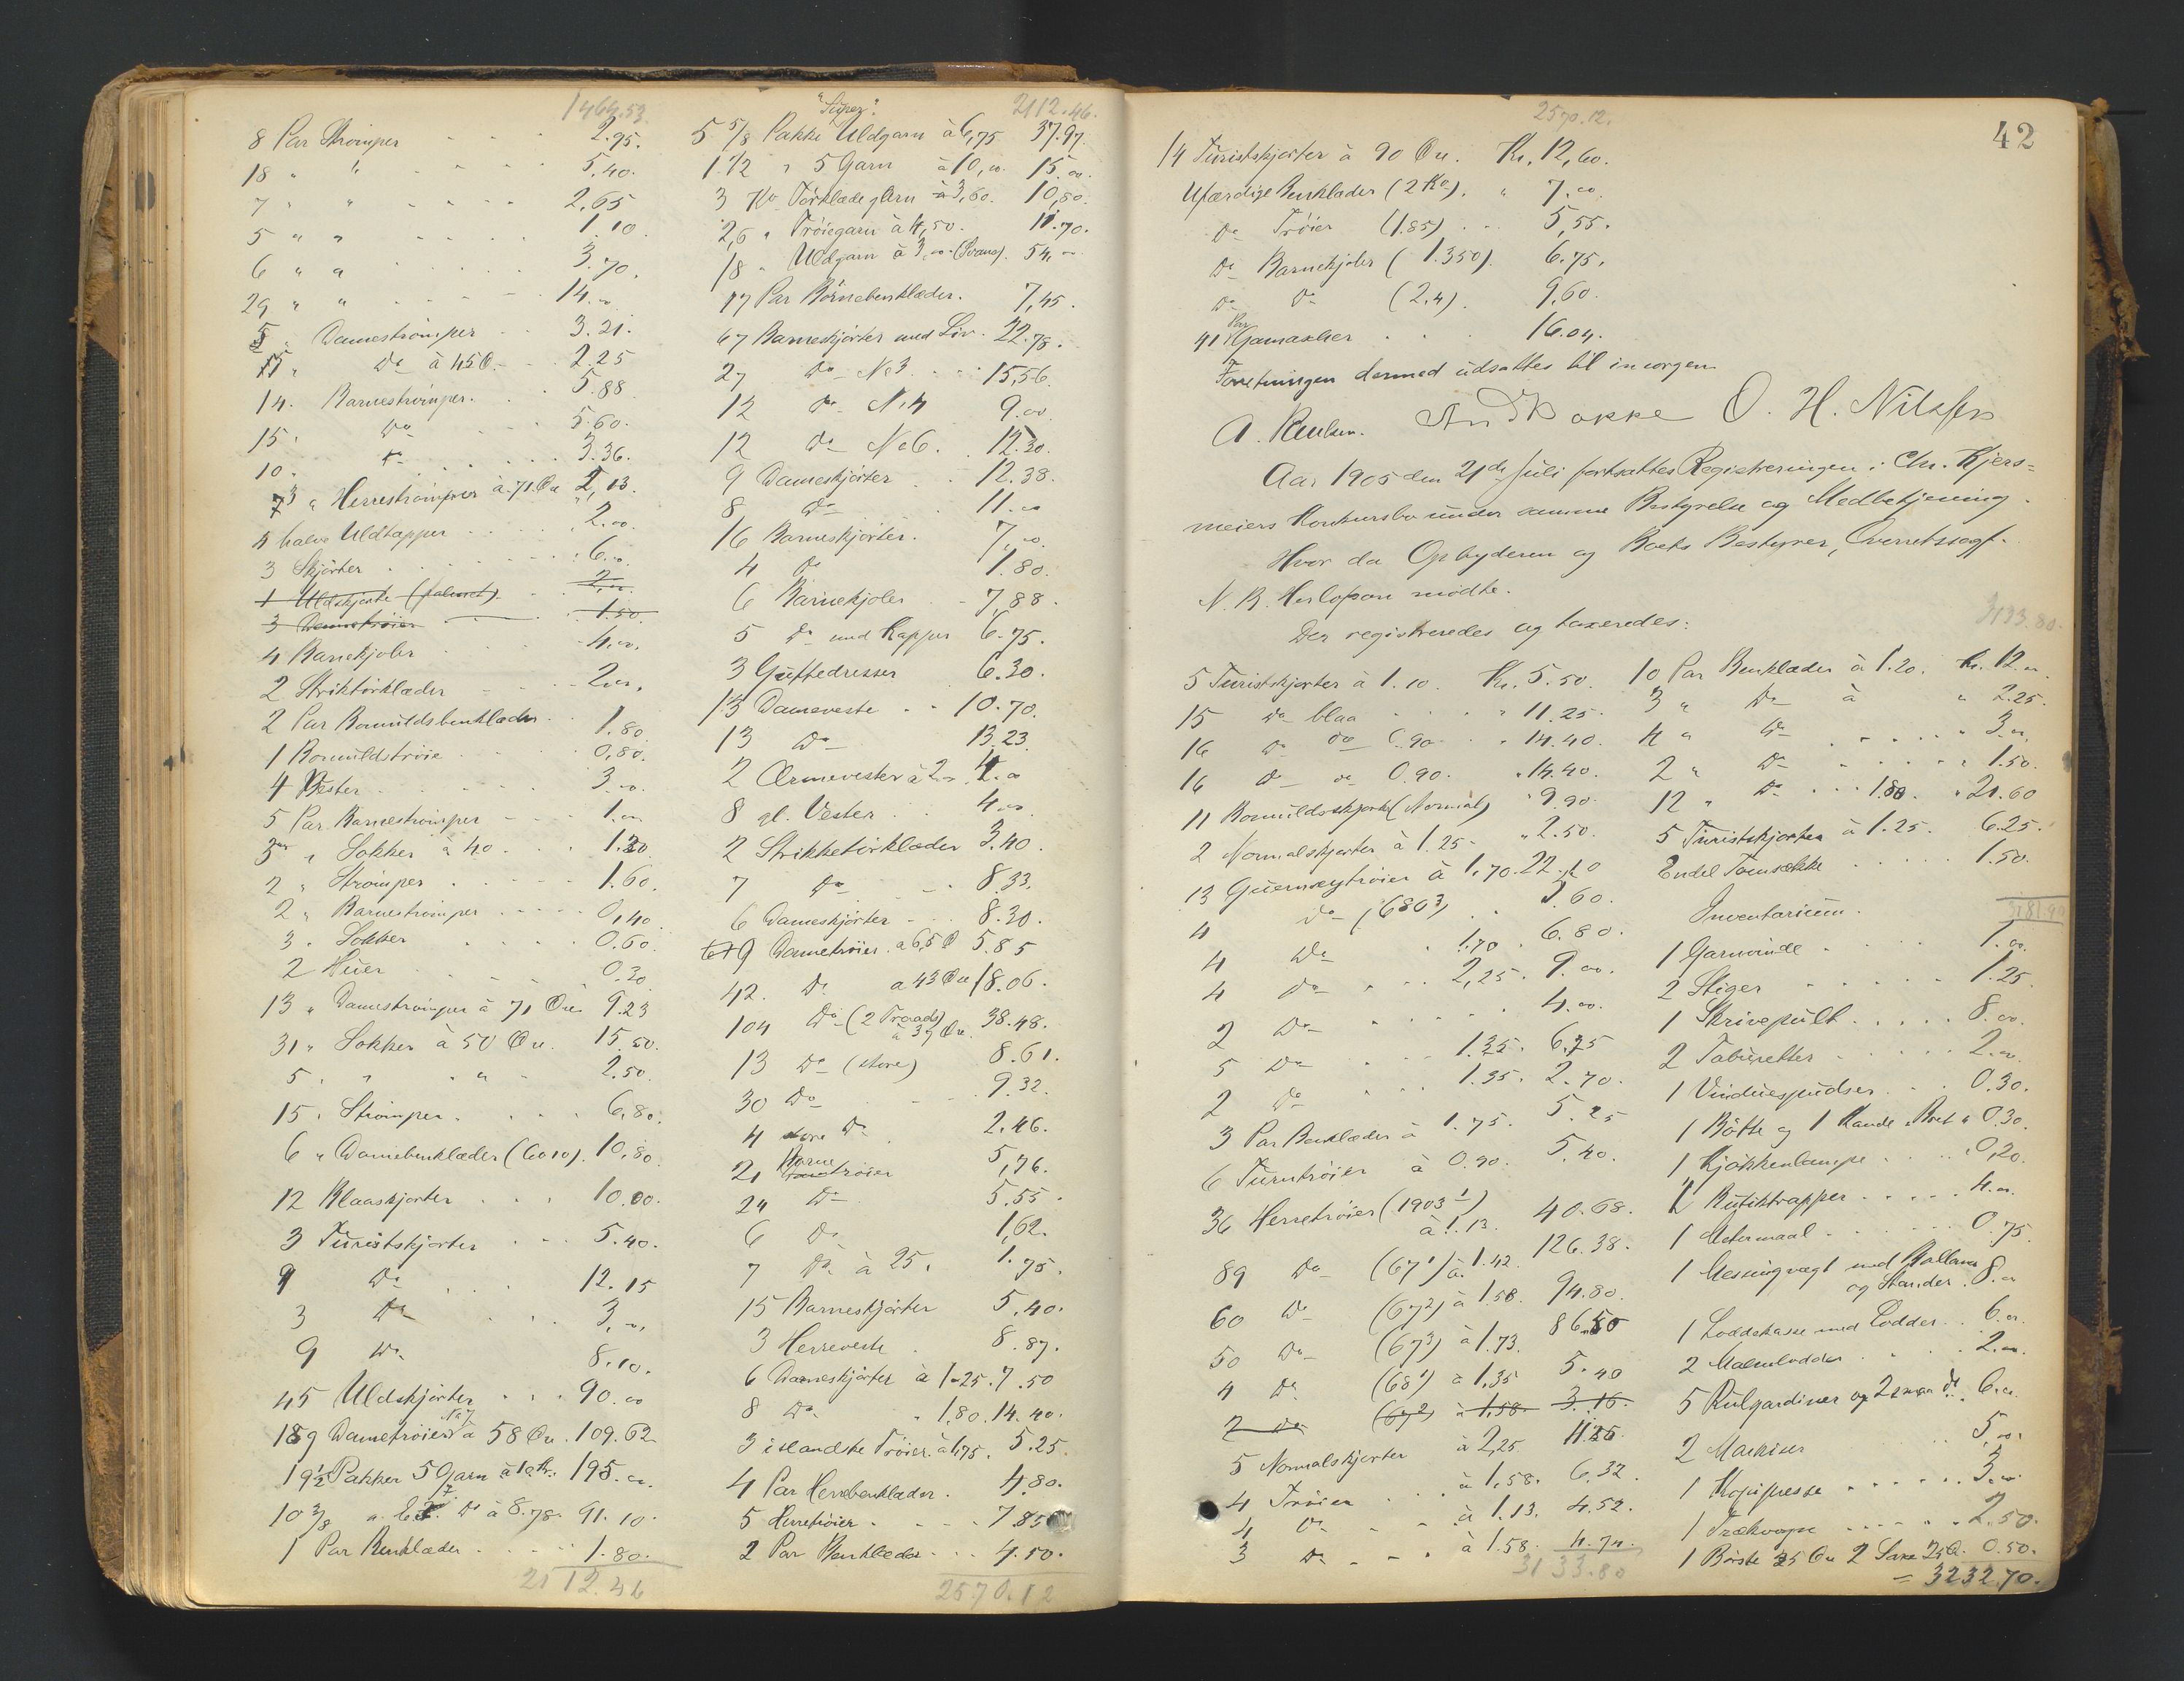 1464.53
8 Par Strømper 2.95.
18 " " 5.40.
7 " " 2.65
5 " " 1.10.
6 " " 3.70.
29 " " 14.00
5 " Damestrømper 3.21.
5 " Do à 45 Ø. 2.25
14. Barnestrømper. 5.88
15. Do 5.60.
10. Do 3.36.
3 " Herrestrømper à 71 Øre 2,13.
4 halve Uldtapper 2.00.
3 Skjørter 6.00
1 Uldskjorte 2,00
3 Dametrøier 1.50.
4 Barnekjoler 4.00.
2 Striktørklæder 2.00.
2 Par Bomuldsbenklæder 1.80
1 Bomuldstrøie 0,80.
4 Vester 3.00.
5 Par Barnestrømper 1.00
3 " Sokker à 40 1.20
2 " Strømper 1.60.
2 " Barnestrømper 0,40
3 " Sokker 0.60.
2 Huer 0.30
13 " Damestrømper à 71 Øre 9.23
31 " Sokker à 50 Øre. 15.50.
5 " " " 2.50.
15 " Strømper. 6.80.
6 " Damebenklæder (6010). 10,80.
12 Blaaskjorter 10.00.
3 Turistskjorter 5.40.
9 Do 12.15
3 Do 3.00,
9 Do 8.10.
45 Uldskjørter 90.00
189 Dametrøier No 7 à 58 Øre. 109.62
19 1/2 Pakker 5 Garn à 10 Kr. 195.00.
10 3/8 " Do à 8.78. 91.10.
1 Par Benklæder 1.80.
2112.46
"Super". 2112.46.
5 5/8 Pakke Uldgarn à 6,75 37.97.
1 1/2 " 5 Garn à 10,00. 15.00.
3 Ko Tørklædegarn à 3,60. 10,80.
2,6 " Trøiegarn à 4,50. 11.70.
18 " Uldgarn à 3,00. (Svane). 54,00
17 Par Børnebenklæder. 7,45.
67 Barneskjørter med Liv. 22.78.
27 Do No 3. 15,56.
12 Do No 4 9.00
12 Do No 6. 12.30.
9 Dameskjørter 12.38.
8 Do 11.00
16 Barneskjørter. 7,00.
4 Do 1.80.
6 Barnekjoler 7,88.
5 Do med Kapper 6.75.
3 Guttedresser 6.30.
13 Dameveste 10.70.
13 Do 13.23
2 Ærmevester à 2.00 4.00
8 gl. Vester 4.00
2 Strikketørklæder 3.40.
7 Do 8.33.
6 Dameskjørter 8.30.
9 Dametrøier. à 65 Ø 5.85
42. Do à 43 Øre 18.06.
104 Do (2 Traads) à 37 Øre. 38.48.
13 Do (store) 8.61.
30 Do 9.32.
4 store Do 2.46.
21 Barnetrøier 5,76.
24 Do 5.55.
6 Do 1,62.
7 Do à 25. 1.75.
15 Barneskjørter 5.40.
3 Herreveste 8.87.
6 Dameskjørter à 1.25. 7.50
8 Do " 1,80. 14.40.
3 islandske Trøier à 1,75. 5.25.
4 Par Herrebenklæder. 4.80.
5 Herretrøier 7.85
2 Par Benklæder 4.50.
2570.12
42
2570.12.
14 Turistskjorter à 90 Øre. Kr. 12,60.
Ufærdige Benklæder (2 Ko). " 7.00.
Do Trøier (1.85) 5,55.
Do Barnekjoler (1.350) 6.75.
Do Do (2.4). 9,60.
41 Par Gamascher 16.04.
Forretningen dermed udsattes til imorgen.
A. Paulsen. And Bakke O. H. Nilssen
Aar 1905 den 21de Juli fortsattes Registreringen i Chr. Kjers=
meiers Konkursbo under samme Bestyrelse og Medbetjening.
Hvor da Opbyderen og Boets Bestyrer, Overretssagf.
N. B. Herlofson mødte.
Der registreredes og taxeredes:
5 Turistskjorter à 1.10. Kr. 5.50.
15 Do blaa " 11.25.
16 Do Do 0.90 " 14.40.
16 Do Do 0.90. " 14.40.
11 Bomuldsskjorte (Normal) " 9.90.
2 Normalskjorter à 1.25. " 2.50.
13 Guernseytrøier à 1.70. 22.10
4 Do (6803) 3.60.
4 Do 1.70. 6.80.
4 Do 2,25. 9.00.
2 Do 4.00.
5 Do 1.35. 6.75
2 Do 1.35. 2.70.
3 Par Benklæder à 1.75. 5.25
6 Turntrøier à 0.90. 5.40.
36 Herretrøier (1903 1) à 1.13. 40.68.
89 Do (67 1) à 1.42. 126.38.
60 Do (67 2) à 1.58. 94.80.
50 Do (67 3) à 1.73. 86.50
4 Do (68 1) à 1,35 5.40
2 Do (67 2) à 1,58. 3.16.
5 Normalskjorter à 2,25 11.25
4 Trøier à 1,58. 6.32.
4 Do à 1.13. 4.52.
3 Do à 1.58. 4.74.
3133.80
3133.80.
10 Par Benklæder à 1.20. Kr. 12.00.
3 " Do à " 2.25.
4 " Do " 3.00.
2 " Do " 1.50.
12 " Do 1.80. " 21.60
5 Turistskjorter à 1.25. 6.25.
Endel Tomsække 1.50.
3181.90
Inventarium.
1 Garnvinde 1.00.
2 Stiger 1.25
1 Skrivepult 8.00.
2 Taburetter 2.00.
1 Vinduespudser 0.30.
1 Bøtte og 1 Kande, Bret 0.30.
1 Kjøkkenlampe 0,20.
1 Butiktrapper 4.00.
1 Metermaal 0.75
1 Messingvægt med Skaaler og Stander 8.00
1 Loddekasse med Lodder 6.00.
2 Malmlodder 2.00.
5 Rulgardiner og 2 smaa do 6.00.
2 Maskiner 5,00.
1 Kopipresse 3.00.
1 Trækvogn 2.50.
1 Børste 25 Øre 2 Saxe 25 Ø. 0.50.
= 3232.70.